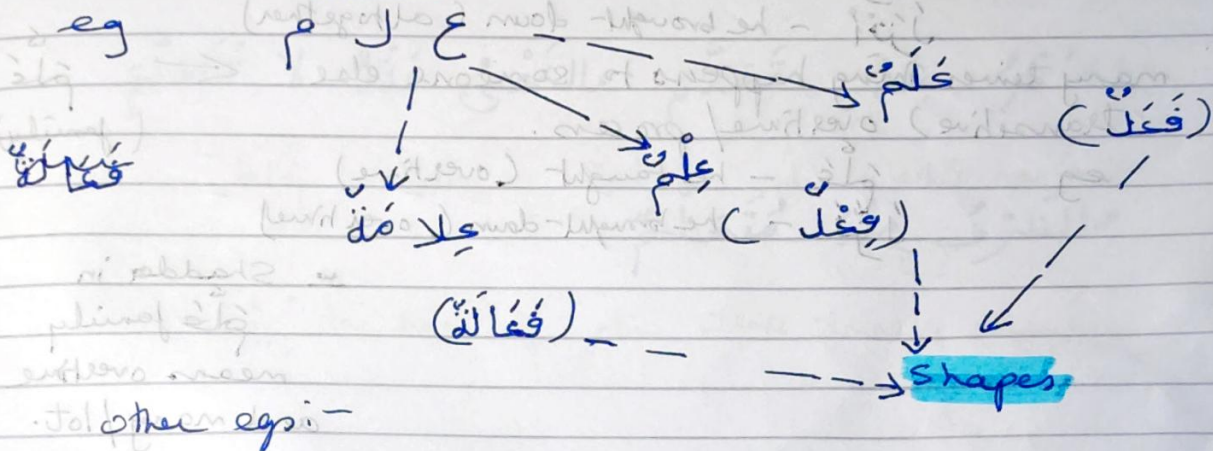 eg ع ل م
عَلَمٌ
(فَعَلٌ)
عِلْمٌ
(فِعْلٌ)
عِلامَةٌ
(فَعَالَةٌ)
shapes
other egs:-